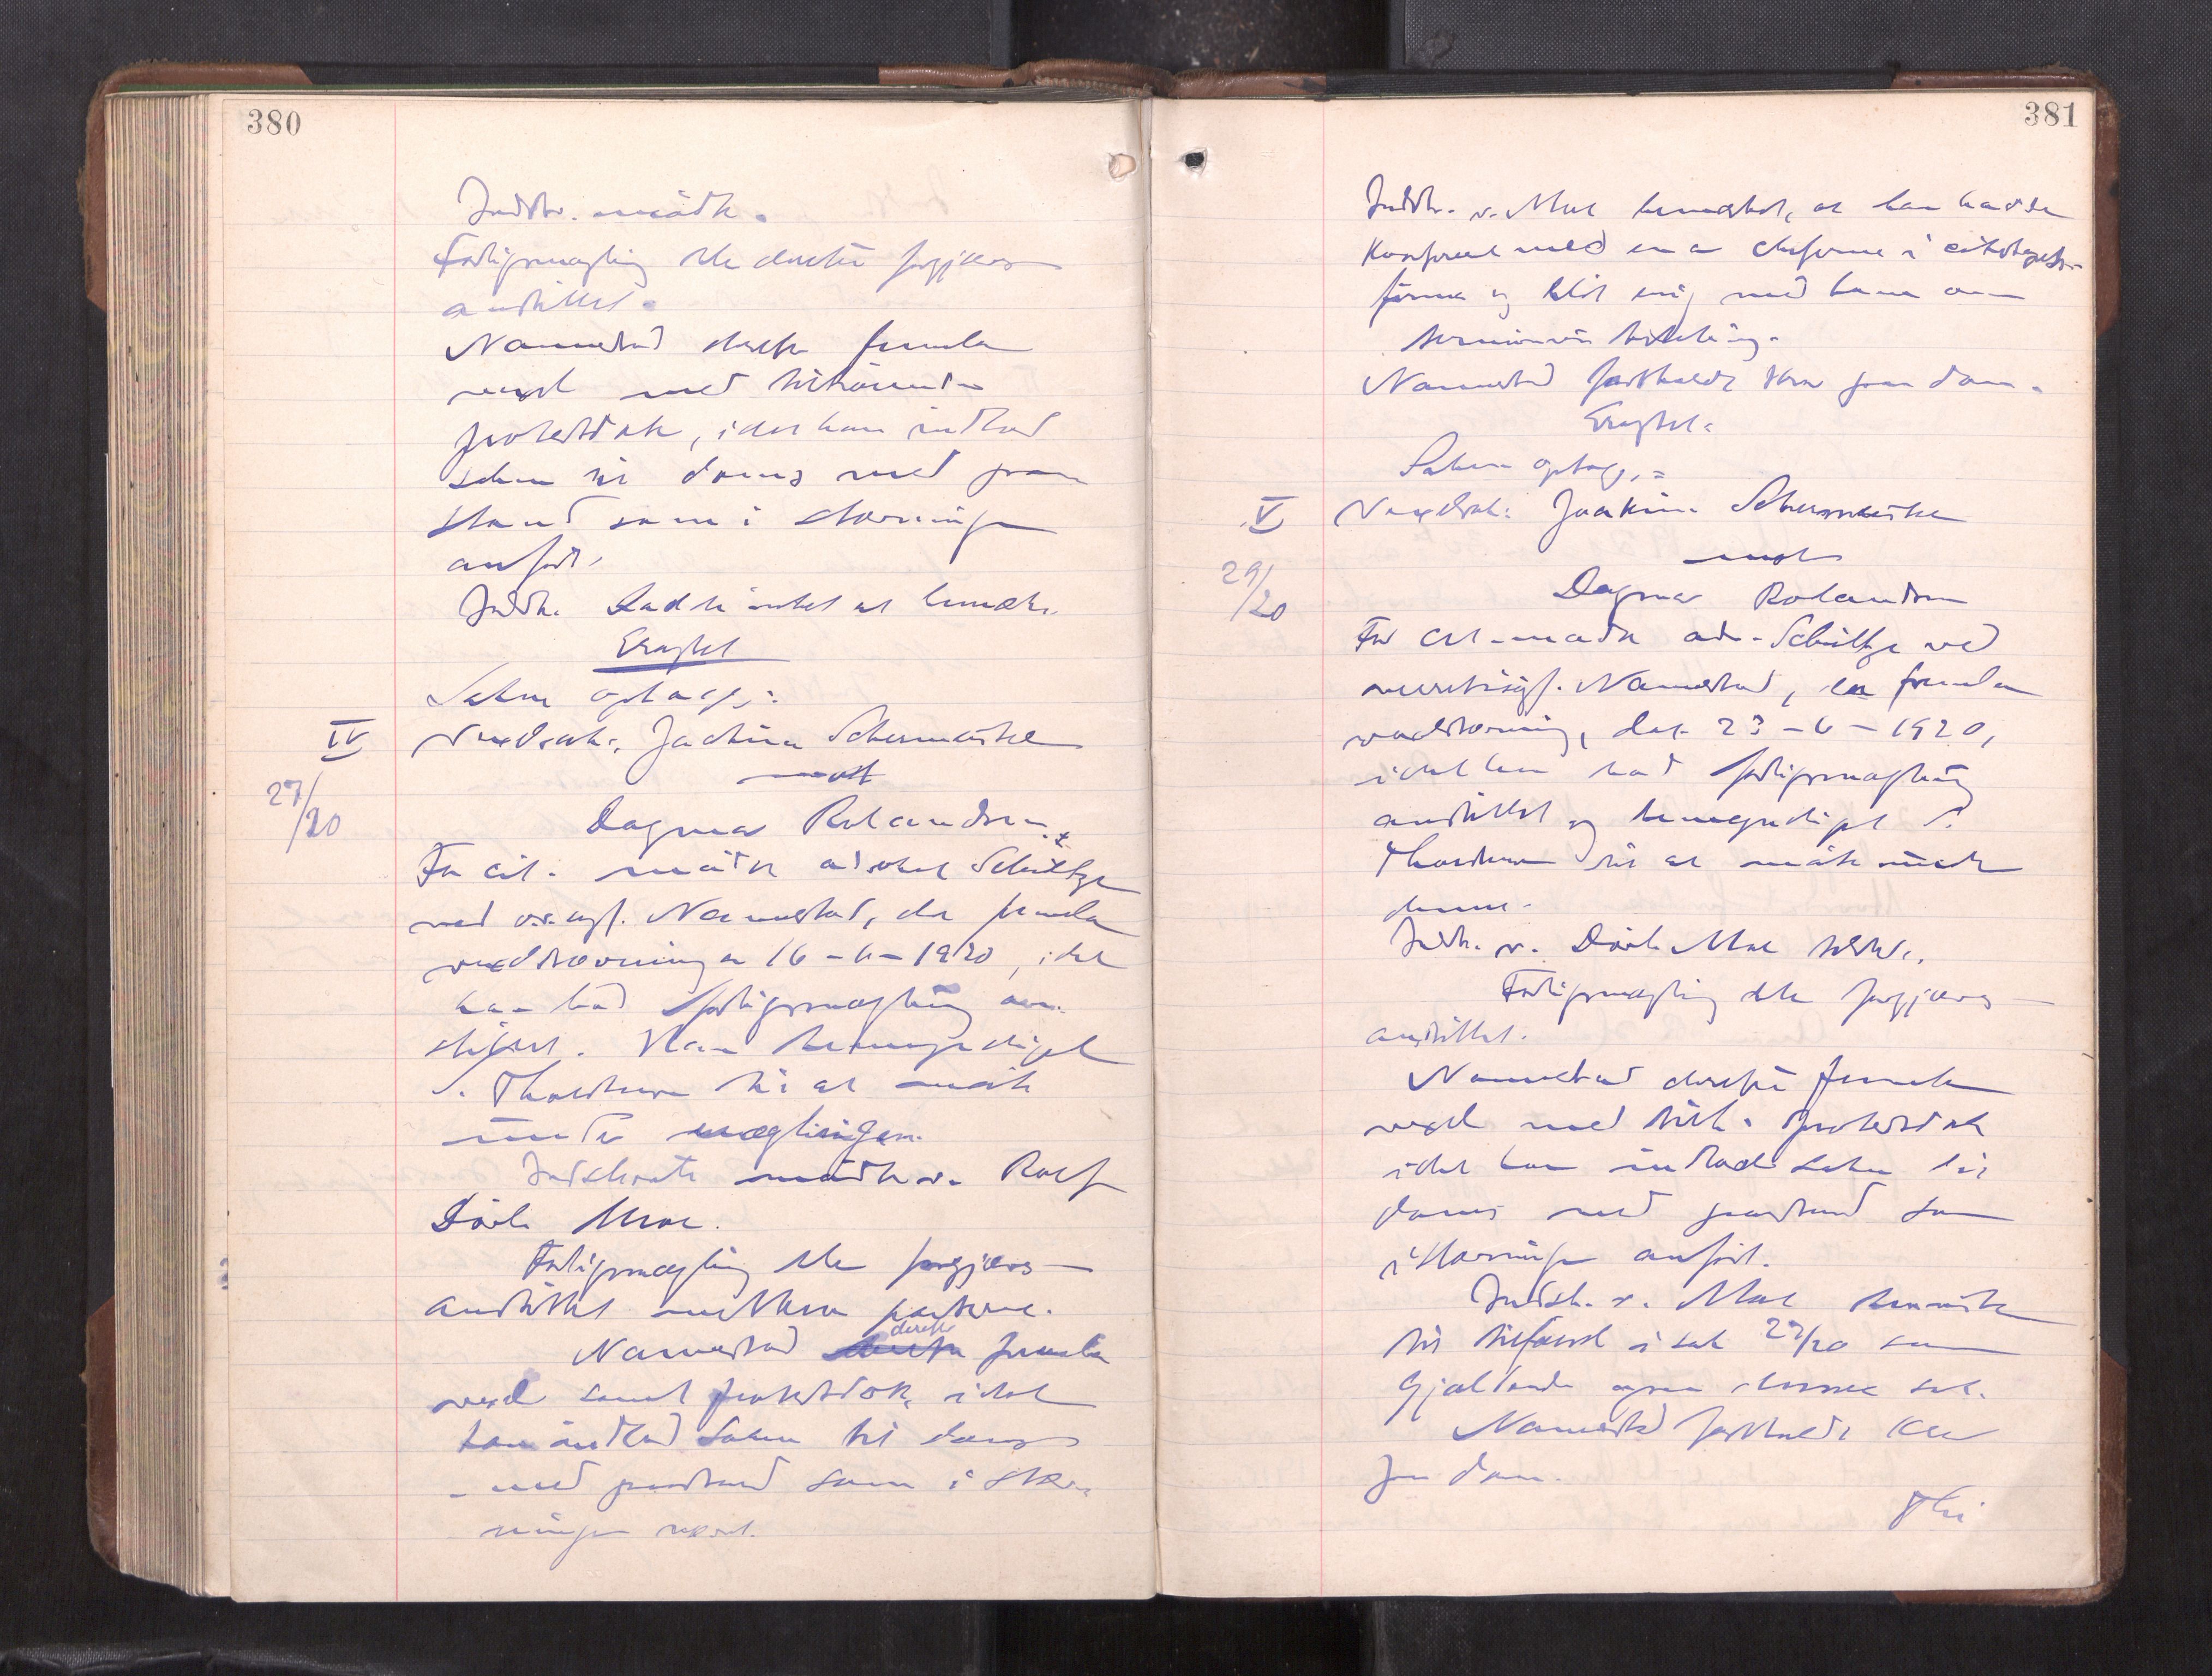 380
Indst. mødte.
Forligsmægling blev derefter forgjæves
anstillet.
Namestad derefter fremla
vexel med tilhørende
protestdok, idet han indlod
saken til doms med paa
stand som i stevningen
anført.
Indst. hadde intet at bemerke.
Eragtet
Saken optages:
IV
27/20
Vexelsak: Joakim Schermeister
mot
Dagmar Rolandsen.
For cit. mødte advokat Schültze
ved o.r.sagf. Namestad, der fremla
vexelstevning av 16-6-1920, idet
han bad forligsmægling an-
stillet. Han bemyndiget
S. Thoresen til at møte
under mæglingen.
Indstevnte mødte v. Rolf
Dørh Moe.
Forligsmægling blev forgjæves
anstillet mellem parterne.
Namestad derefter fremla
vexel samt protestdok, idet
han indlod saken til doms
med paastand som i stev-
ningen
381
Indst. v. Moe bemerket, at han hadde
konferert med en av cheferne i
firma og blit enig med ham om
terminvis betaling.
Namestad fastholdt krav paa dom.
Eragtet:
Saken optages:
V
29/20
Vexelsak: Joakim Schermeister
mot
Dagmar Rolandsen
For cit. mødte adv. Schültze ved
overretssagf. Namestad, der fremla
vexelstevning, dat. 23-6-1920,
idet han bad forligsmægling
anstillet og bemyndiget S.
Thoresen til at møte under
denne.
Indst. v. Dørh Moe
Forligsmægling blev forgjæves
anstillet.
Namestad derefter fremla
vexel med tilh. protestdok
idet han indlod saken til
doms med paastand som
i stevningen anført.
Indst. v. Moe henviste
til tilførsel i sak 27/20 som
gjældende ogsaa denne sak.
Namestad fastholdt krav
paa dom.